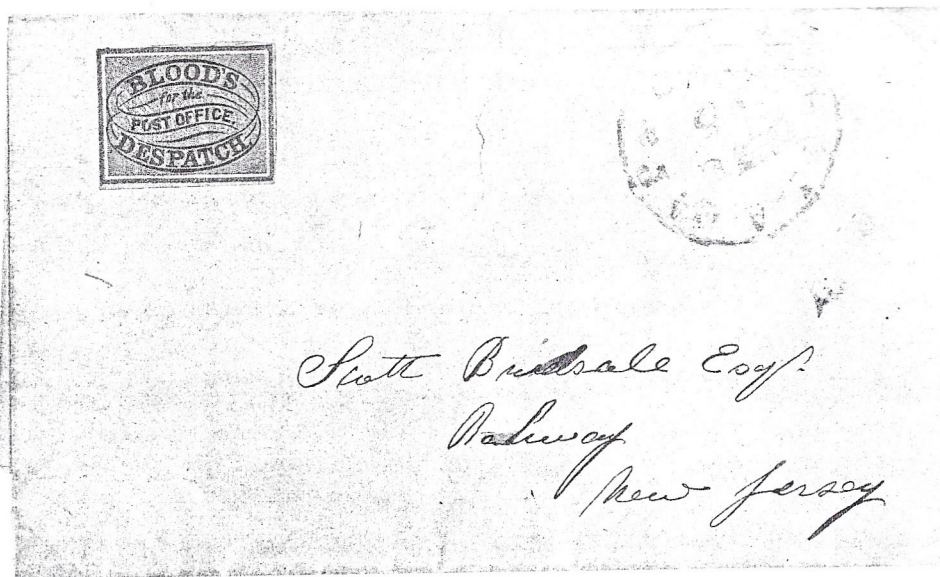 BLOOD'S
for the
POST OFFICE
DESPATCH
Scott Birdsale Esqr.
Rahway
New Jersey